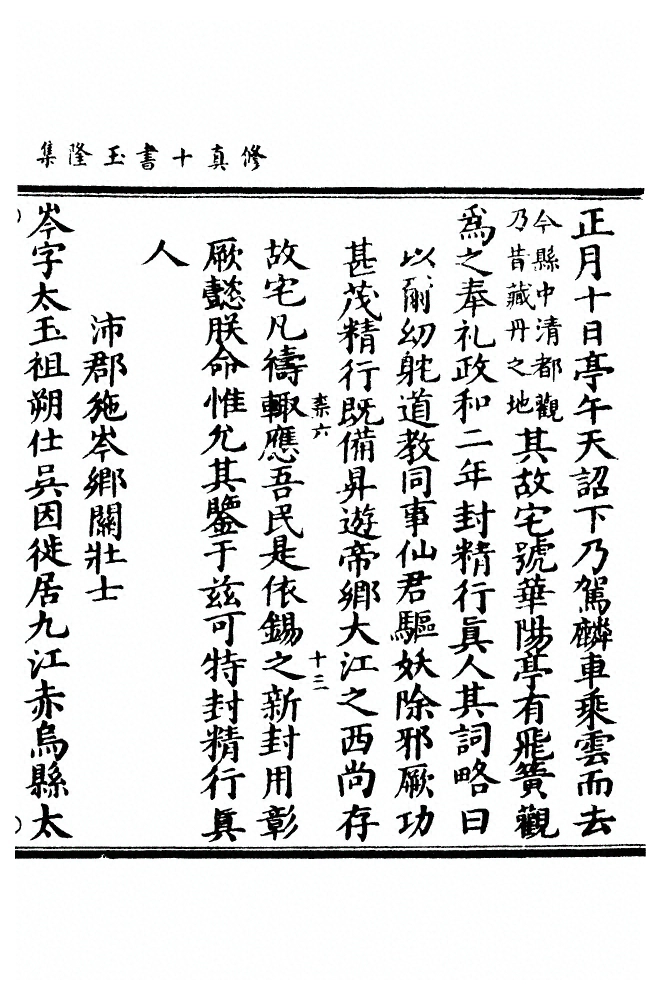 修真十書玉隆集
正月十日亭午天詔下乃駕麟車乘雲而去
今縣中清都觀
乃昔藏丹之地
其故宅號華陽亭有飛簧觀
爲之奉礼政和二年封精行眞人其詞略曰
以爾幼躭道教同事仙君驅妖除邪厥功
甚茂精行既備昇遊帝鄉大江之西尚存
柰六
十三
故宅凡禱輙應吾民是依錫之新封用彰
厥懿朕命惟允其鑒于兹可特封精行眞
人
沛郡施岑鄉關壯士
岑字太玉祖朔仕吳因徙居九江赤烏縣太